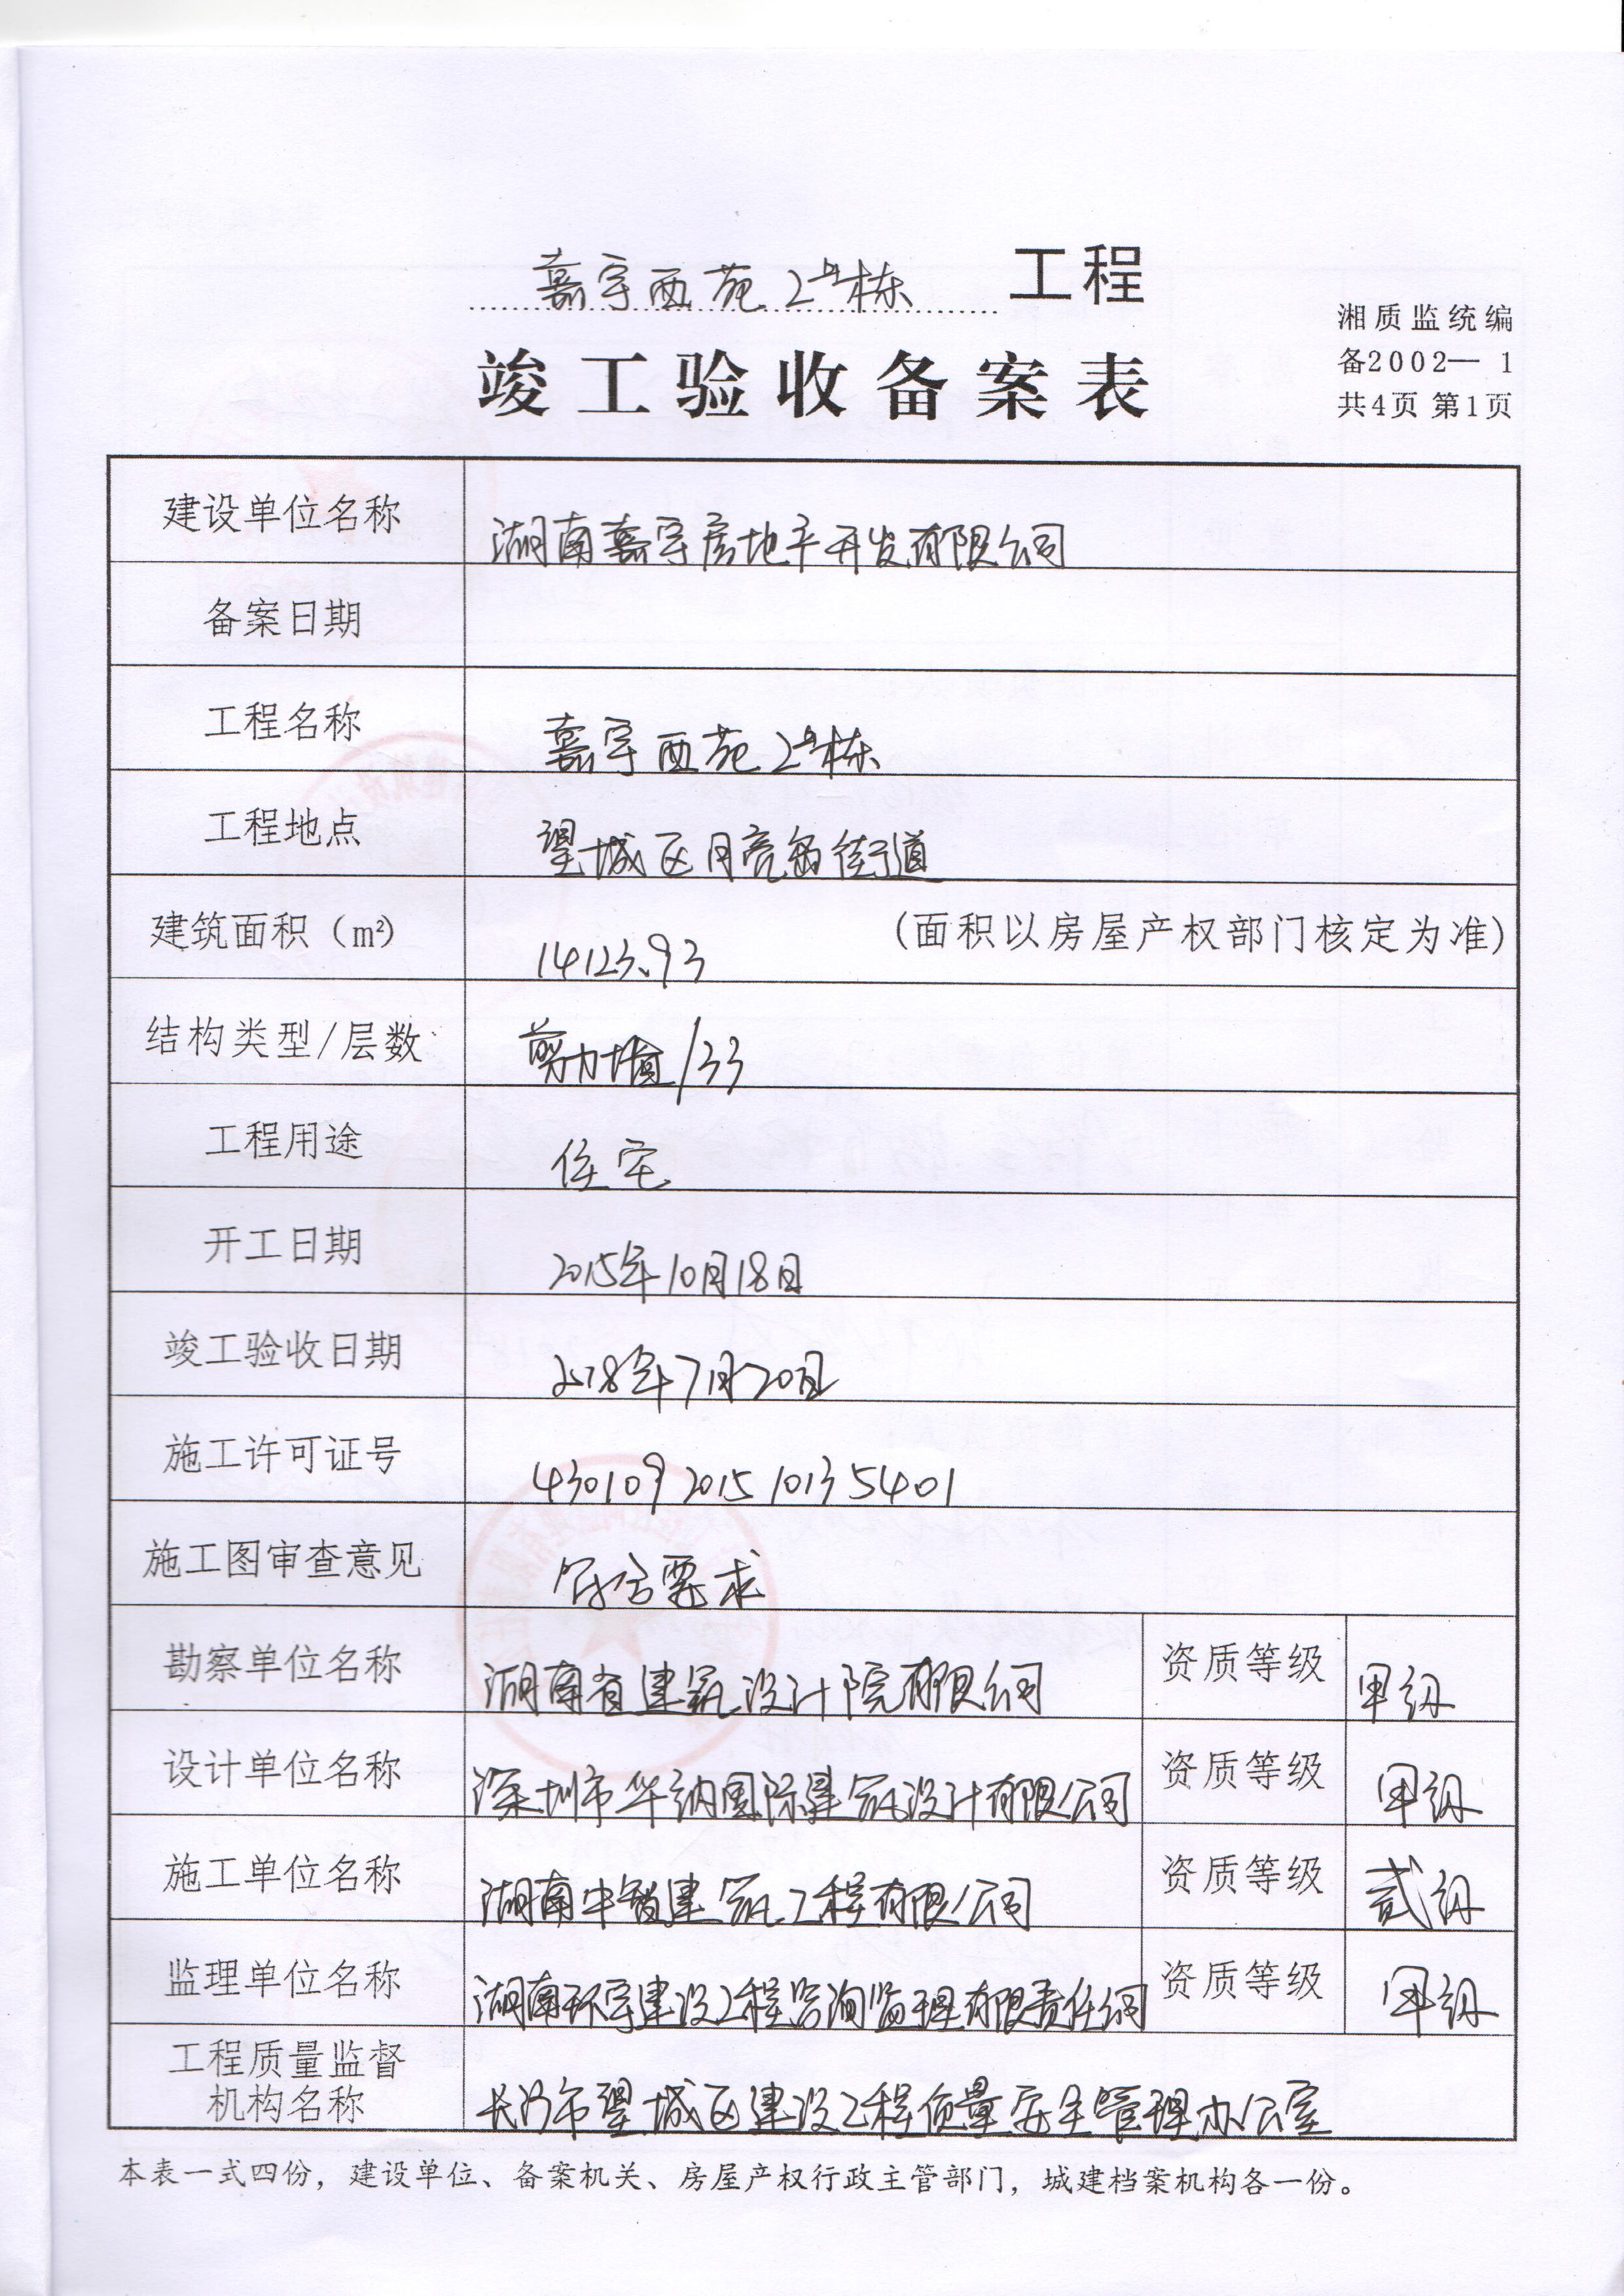 嘉宇西苑2#栋 工程
竣工验收备案表
湘质监统编
备2002—1
共4页 第1页
建设单位名称 湖南嘉宇房地产开发有限公司
备案日期
工程名称 嘉宇西苑2#栋
工程地点 望城区月亮岛街道
建筑面积（m²） 14123.93 （面积以房屋产权部门核定为准）
结构类型/层数 剪力墙/33
工程用途 住宅
开工日期 2015年10月18日
竣工验收日期 2018年7月20日
施工许可证号 430109201510135401
施工图审查意见 符合要求
勘察单位名称 湖南省建筑设计院有限公司 资质等级 甲级
设计单位名称 深圳市华纳国际建筑设计有限公司 资质等级 甲级
施工单位名称 湖南中智建筑工程有限公司 资质等级 贰级
监理单位名称 湖南环宇建设工程咨询监理有限责任公司 资质等级 甲级
工程质量监督
机构名称 长沙市望城区建设工程质量安全管理办公室
本表一式四份，建设单位、备案机关、房屋产权行政主管部门，城建档案机构各一份。